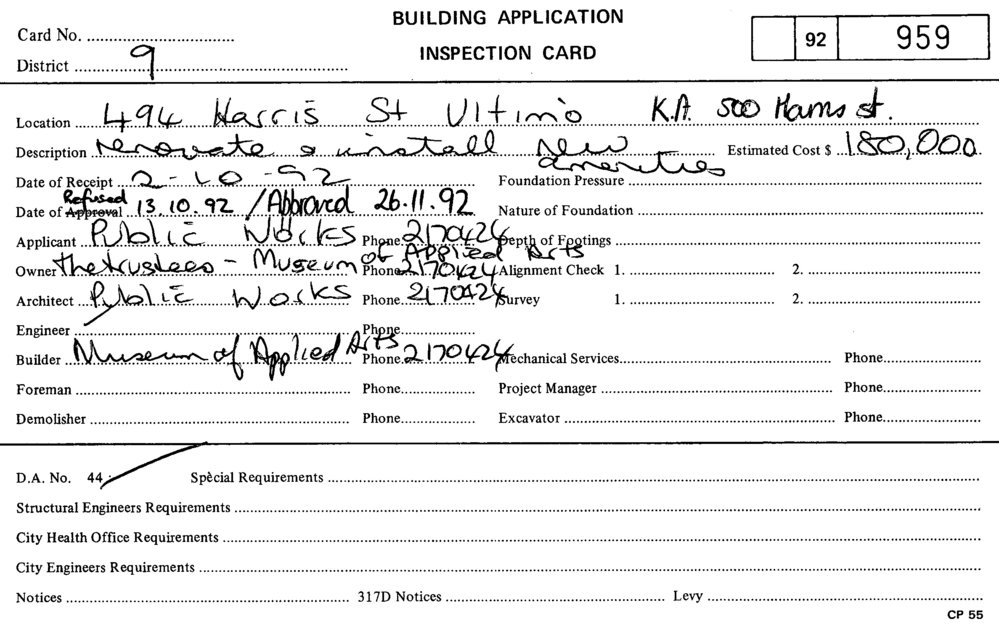 BUILDING APPLICATION
INSPECTION CARD
Card No.
District 9
92 959
Location 494 Harris St Ultimo K.A. 500 Harris st.
Description renovate & install new amenities Estimated Cost $ 180,000
Date of Receipt 2-10-92 Foundation Pressure
Date of Approval Refused 13.10.92 / Approved 26.11.92 Nature of Foundation
Applicant Public Works Phone 2170424 Depth of Footings
Owner The trustees - Museum of Applied Arts Phone 2170424 Alignment Check 1. 2.
Architect Public Works Phone 2170424 Survey 1. 2.
Engineer Phone
Builder Museum of Applied Arts Phone 2170424 Mechanical Services Phone
Foreman Phone Project Manager Phone
Demolisher Phone Excavator Phone
D.A. No. 44 Special Requirements
Structural Engineers Requirements
City Health Office Requirements
City Engineers Requirements
Notices 317D Notices Levy
CP 55